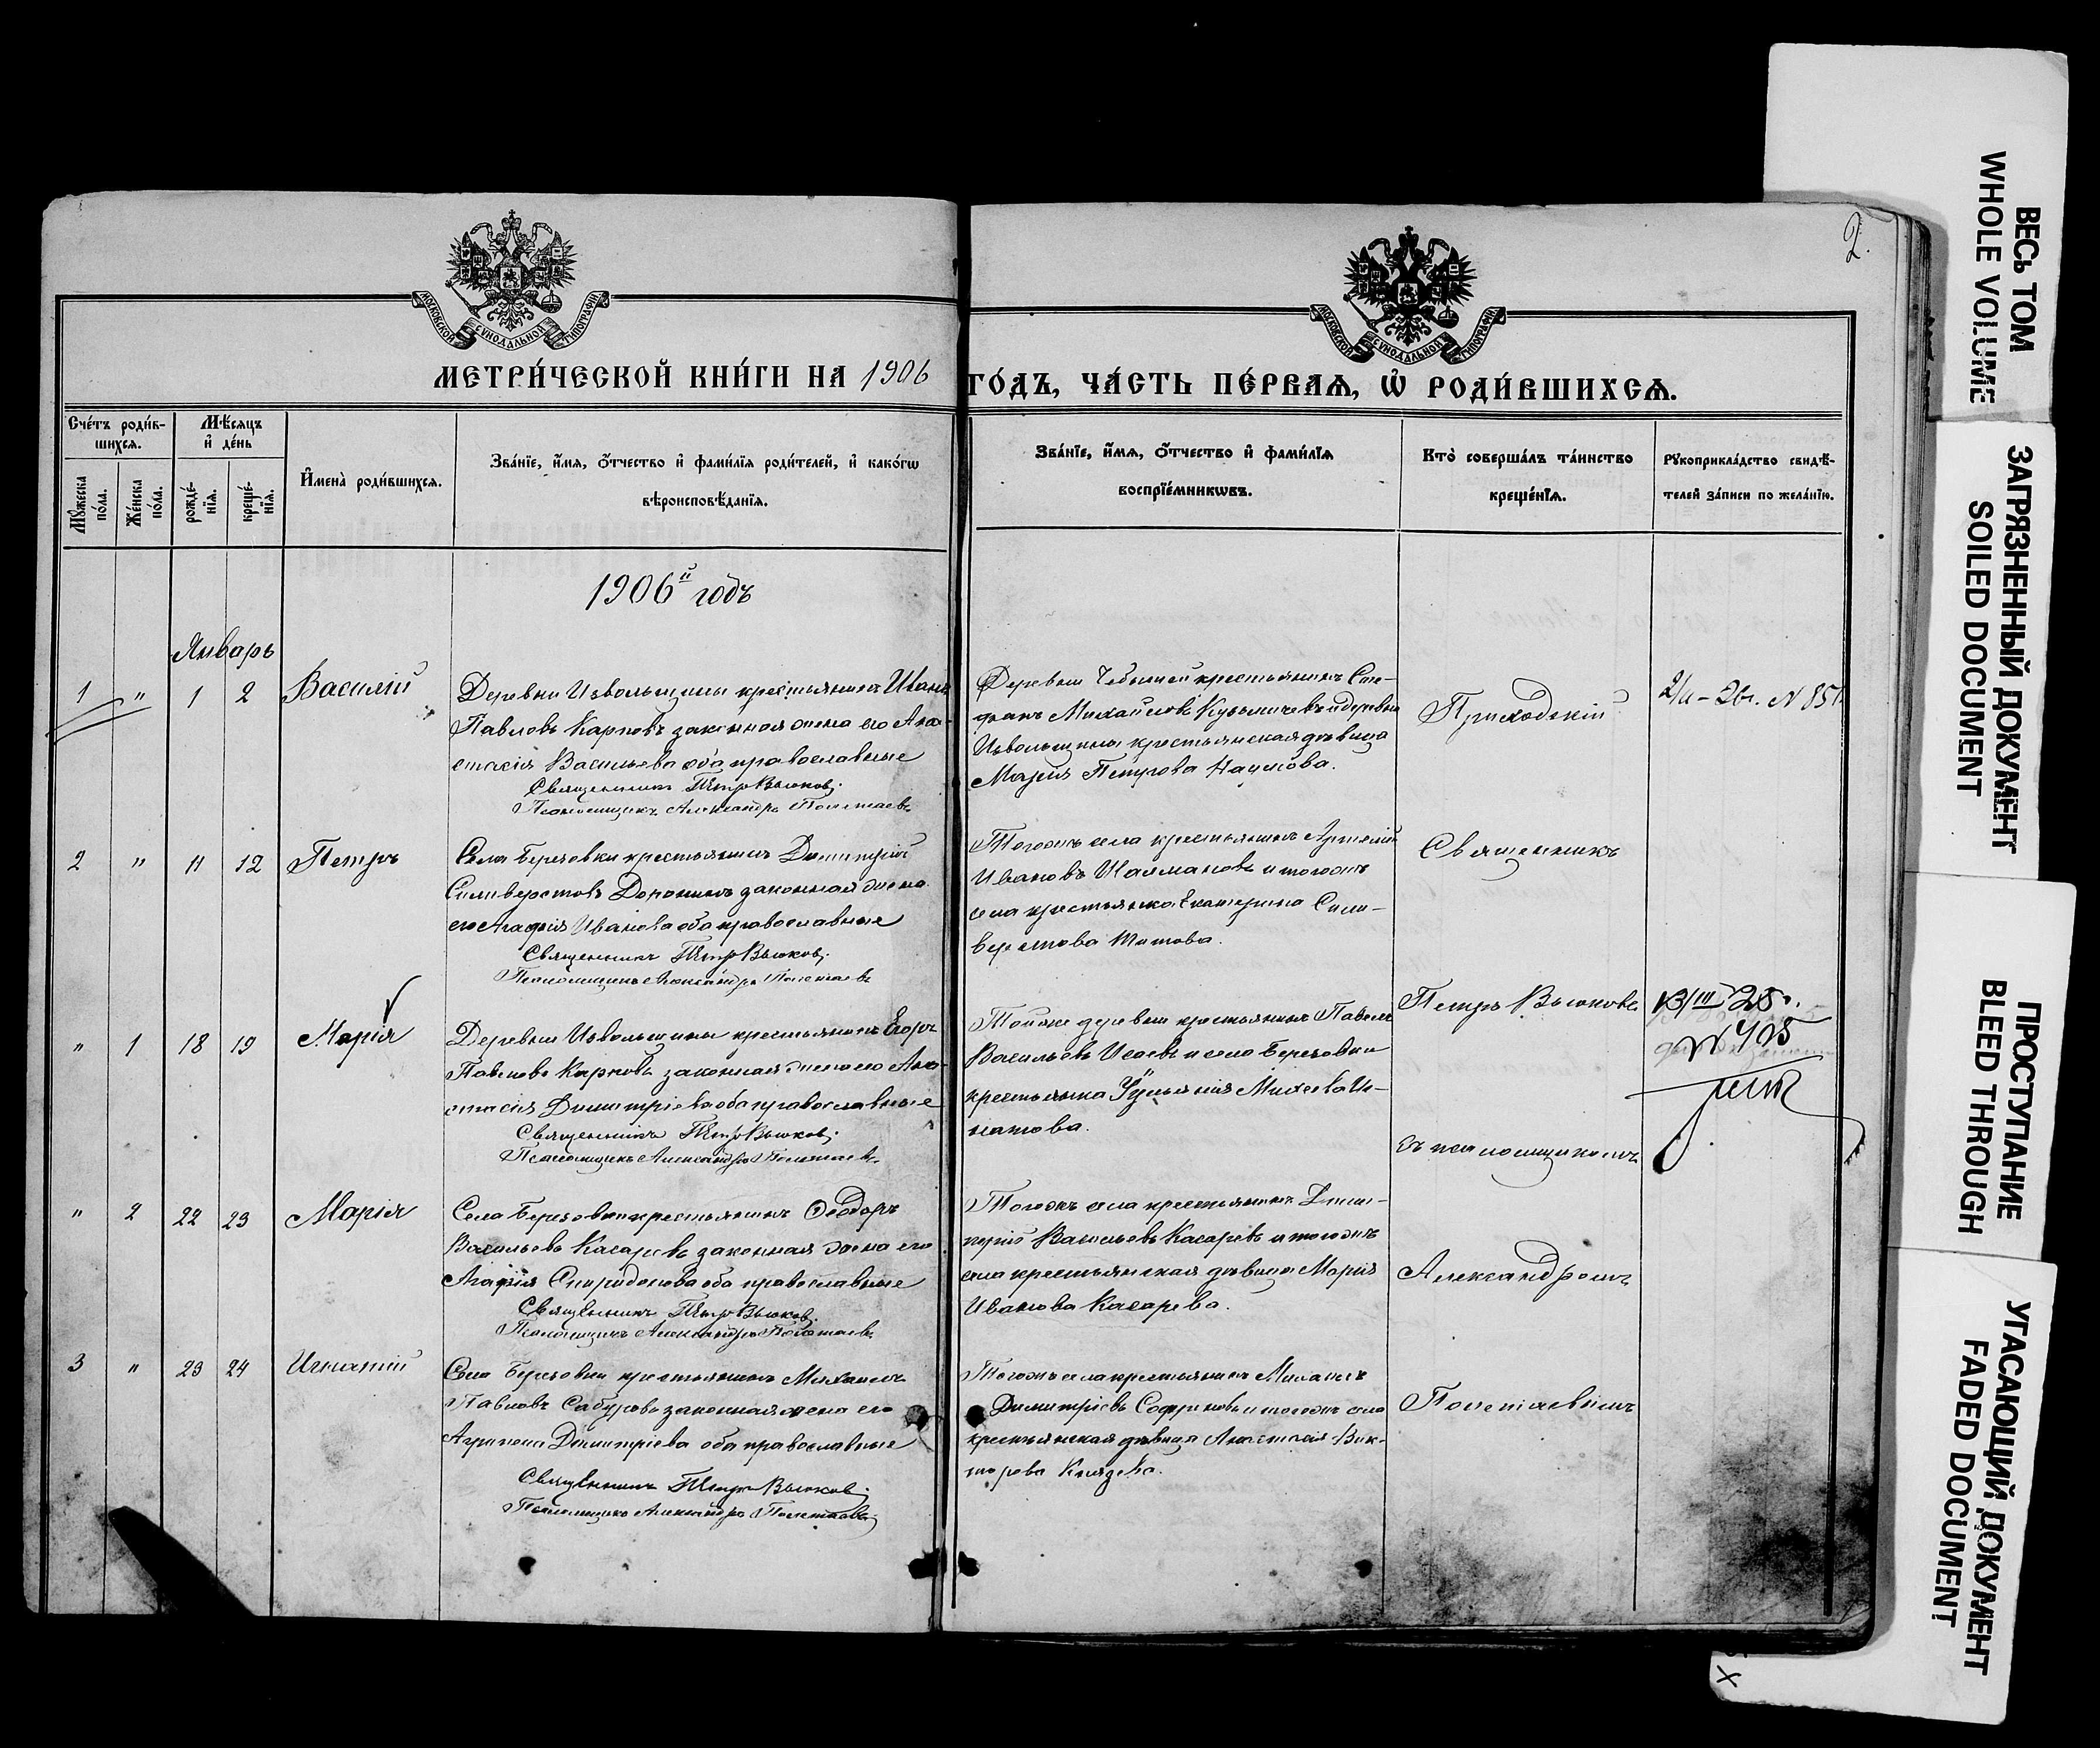 2.
МОСКОВСКОЙ СУНОДАЛЬНОЙ ТИПОГРАФІИ
МОСКОВСКОЙ СУНОДАЛЬНОЙ ТИПОГРАФІИ
МЕТРИ́ЧЕСКОЙ КНИ́ГИ НА 1906 ГО́ДЪ, ЧА́СТЬ ПЕ́РВАѦ, Ѡ҆ РОДИ́ВШИХСѦ.
Сче́тъ роди́в-
шихсѧ.
Мꙋ́жеска по́ла.
Же́нска по́ла.
Мѣ́сѧцъ
и҆ де́нь
рожде́-
нїѧ.
креще́-
нїѧ.
И҆мена̀ роди́вшихсѧ.
Зва́нїе, и҆́мѧ, ѻ҆́тчество и҆ фами́лїѧ роди́телей, и҆ како́гѡ
вѣроисповѣ́данїѧ.
Зва́нїе, и҆́мѧ, ѻ҆́тчество и҆ фами́лїѧ
воспрїе́мникѡвъ.
Кто̀ соверша́лъ та́инство
креще́нїѧ.
Рꙋкоприкла́дство свидѣ́-
телей за́писи по жела́нїю.
1906й годъ
Январь
1 " 1 2 Василій
Деревни Извольщины крестьянинъ Иванъ
Павловъ Карповъ законная жена его Ана-
стасія Васильева оба православные
Священникъ Петръ Вьюковъ.
Псаломщикъ Александръ Полетаевъ
Деревни крестьянинъ Сте-
фанъ Михайловъ Кузьмичевъ и деревни
Извольщины крестьянская дѣвица
Марія Петрова Наумова.
Приходскій
2 " 11 12 Петръ
Села Березовки крестьянинъ Димитрій
Силиверстовъ Доронинъ законная жена
его Агафія Иванова оба православные
Священникъ Петръ Вьюковъ.
Псаломщикъ Александръ Полетаевъ
Тогожъ села крестьянинъ Артемій
Ивановъ и тогожъ
села крестьянка Екатерина Сили-
верстова Титова.
Священникъ
" 1 18 19 Марія
Деревни Извольщины крестьянинъ Егоръ
Павловъ Карповъ законная жена его Ана-
стасія Димитріева оба православные
Священникъ Петръ Вьюковъ.
Псаломщикъ Александръ Полетаевъ
Тойже деревни крестьянинъ Павелъ
Васильевъ Исаевъ и села Березовки
крестьянка Михеева Иг-
натова.
Петръ Вьюковъ
13/III 25г.
№ 405
съ псаломщикомъ
" 2 22 23 Марія
Села Березовки крестьянинъ Ѳеодоръ
Васильевъ Касаревъ законная жена его
Агафія Спиридонова оба православные
Священникъ Петръ Вьюковъ.
Псаломщикъ Александръ Полетаевъ
Тогожъ села крестьянинъ Дими-
трій Васильевъ Касаревъ и тогожъ
села крестьянская дѣвица Марія
Иванова Касарева.
Александромъ
3 " 23 24 Игнатій
Села Березовки крестьянинъ Михаилъ
Павловъ Сабуровъ законная жена его
Агрипена Димитріева оба православные
Священникъ Петръ Вьюковъ.
Псаломщикъ Александръ Полетаевъ
Тогожъ села крестьянинъ Михаилъ
Димитріевъ Софроновъ и тогожъ села
крестьянская дѣвица Анастасія Вик-
торова Князева.
Полетаевымъ
ВЕСЬ ТОМ
WHOLE VOLUME
ЗАГРЯЗНЕННЫЙ ДОКУМЕНТ
SOILED DOCUMENT
ПРОСТУПАНИЕ
BLEED THROUGH
УГАСАЮЩИЙ ДОКУМЕНТ
FADED DOCUMENT